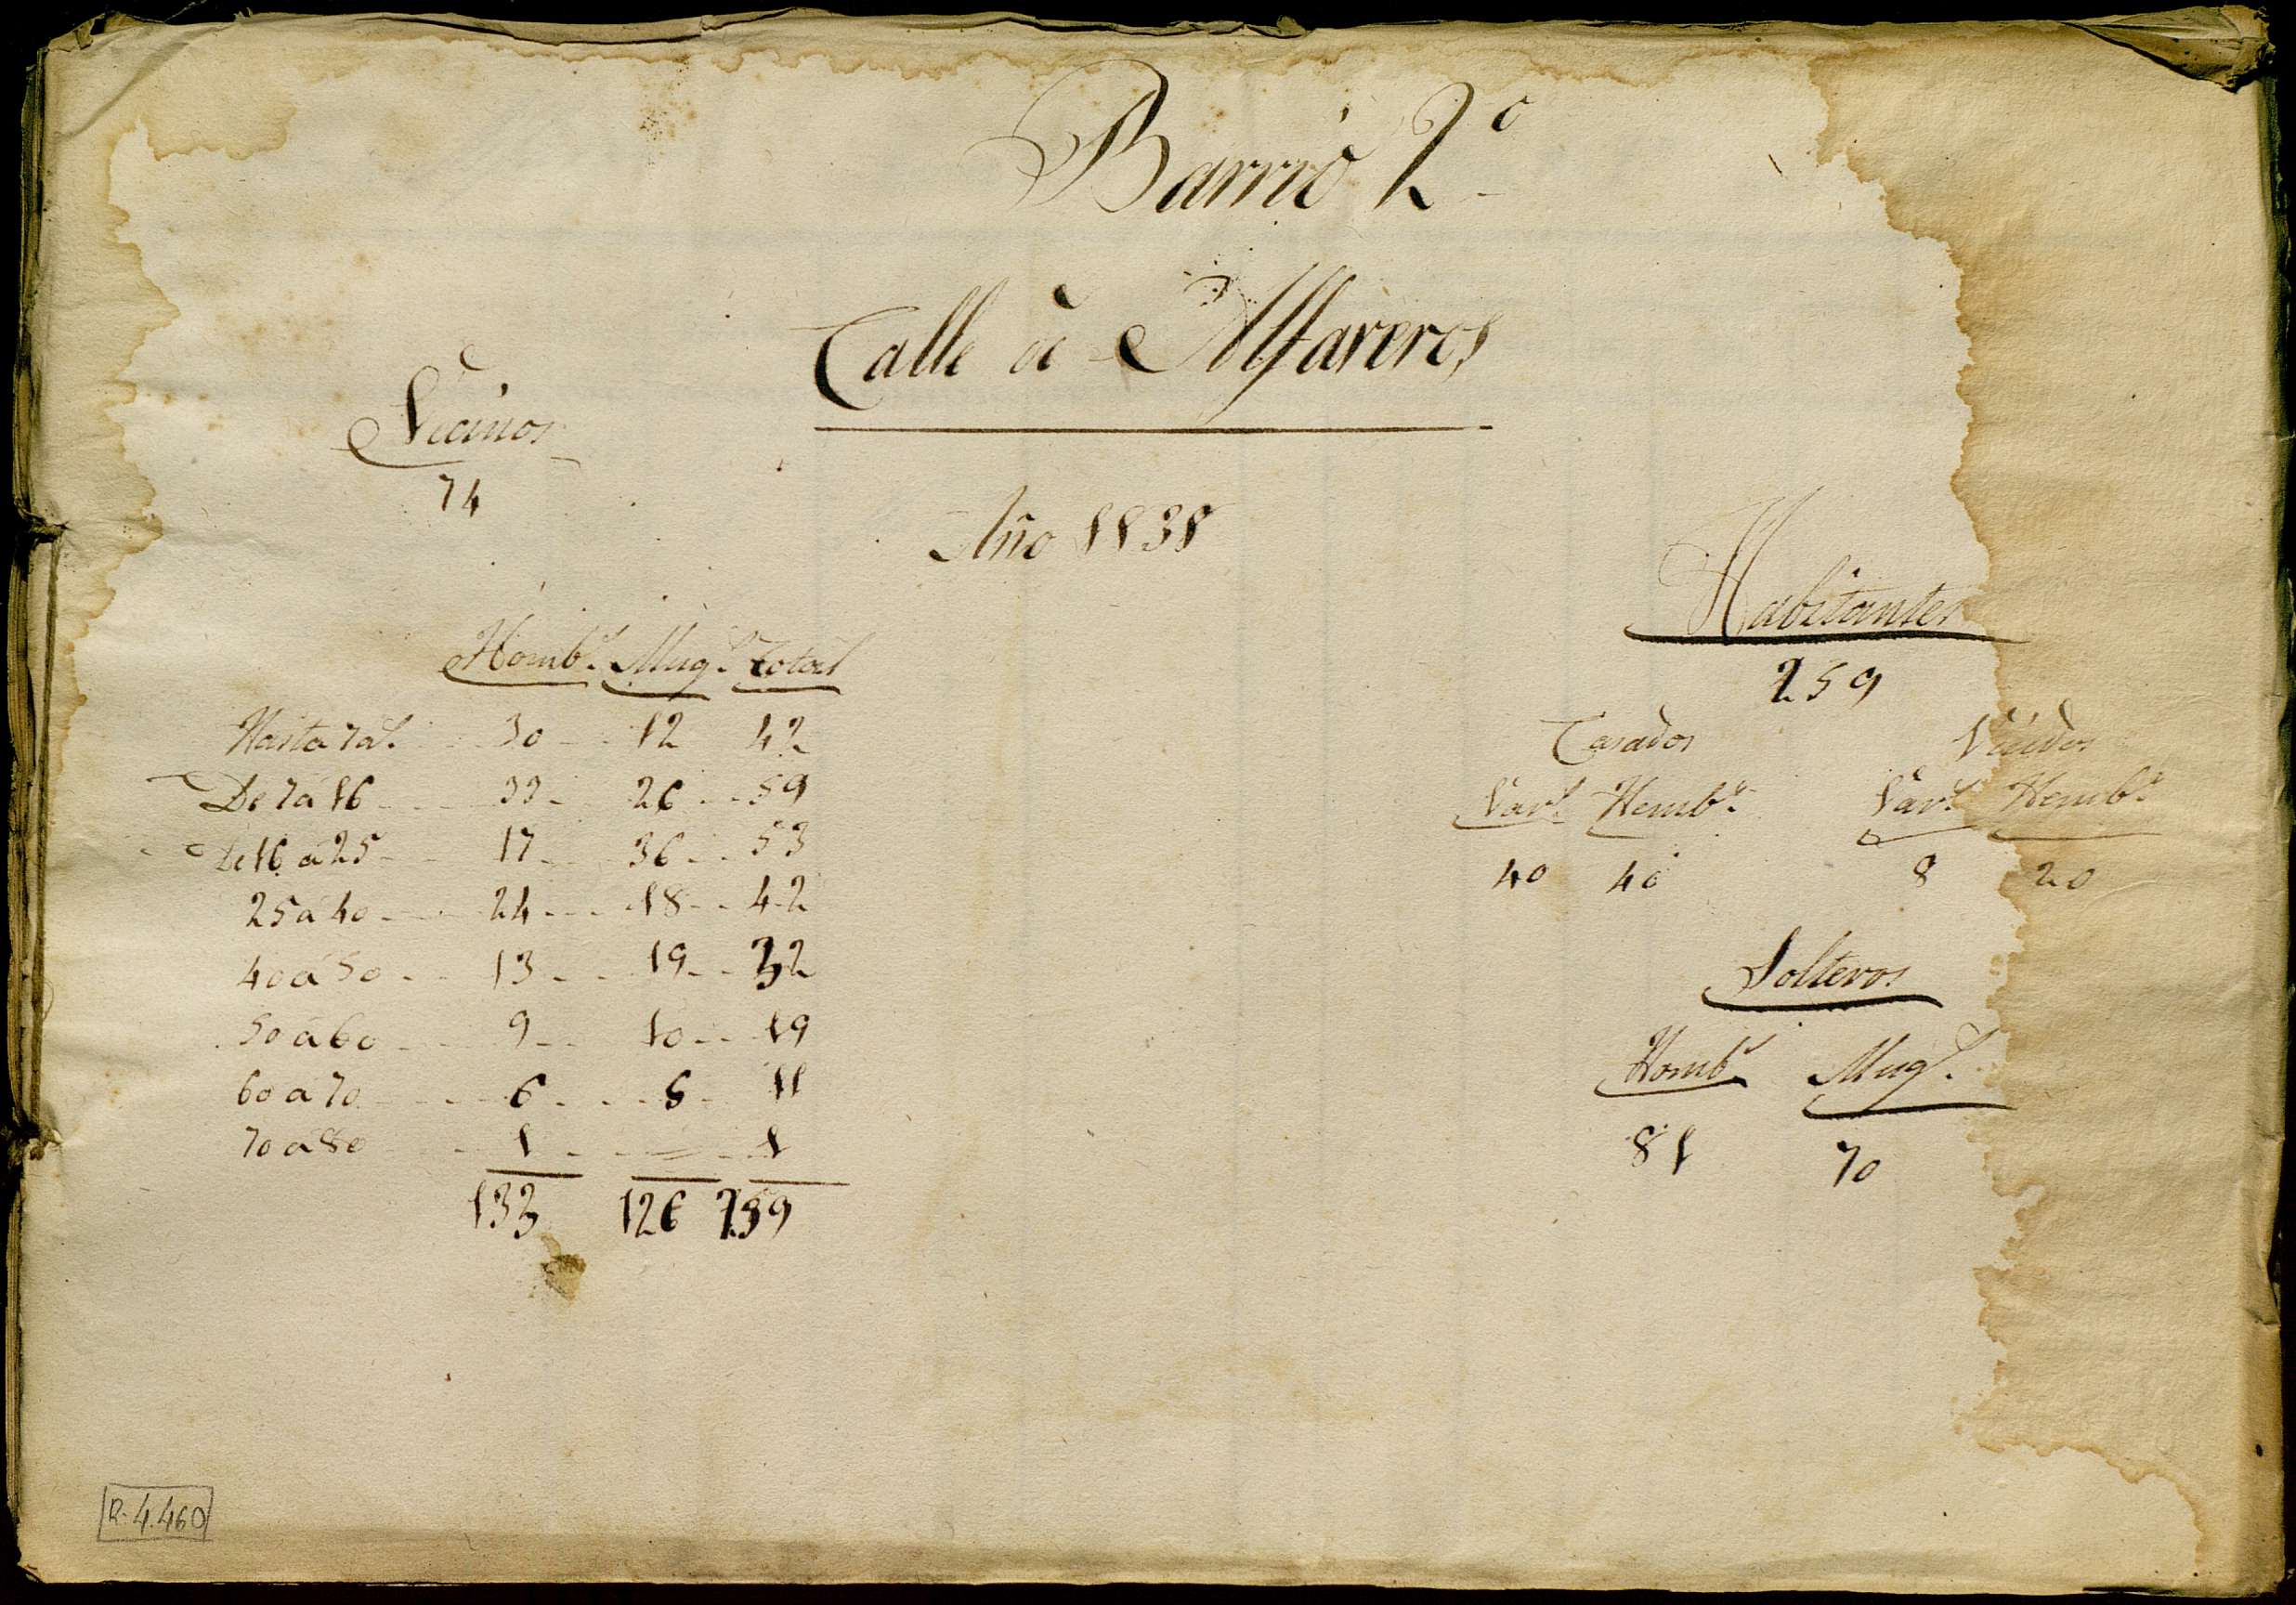 Barrio 2.º
Calle de Alfareros
Vecinos
74
Año 1838
Habitantes
259
Homb.s Mug.s Total
Hasta 7 a.s 30 12 42
De 7 a 16 33 26 59
De 16 a 25 17 36 53
25 a 40 24 18 42
40 a 50 13 19 32
50 a 60 9 10 19
60 a 70 6 5 11
70 a 80 1 = 1
133 126 259
Casados Viudos
Var.s Hemb.s Var.s Hemb.s
40 40 8 20
Solteros
Homb.s Mug.s
81 70
R. 4.460